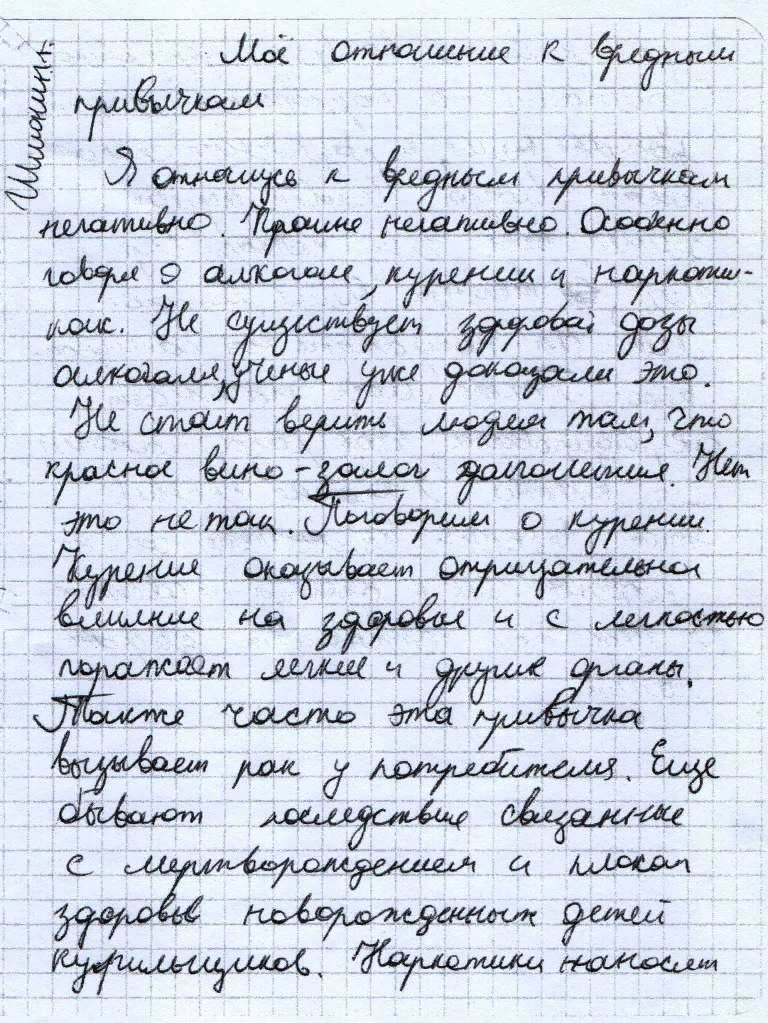 Моё отношение к вредным
привычкам
Я отношусь к вредным привычкам
негативно. Крайне негативно. Особенно
говоря о алкоголе, курении и наркоти-
ках. Не существует здоровой дозы
алкоголя, ученые уже доказали это.
Не стоит верить людям там, что
красное вино - залог долголетия. Нет
это не так. Поговорим о курении.
Курение оказывает отрицательное
влияние на здоровье и с легкостью
поражает легкие и другие органы.
Также часто эта привычка
вызывает рак у потребителя. Еще
бывают последствия связанные
с мертворождением и плохим
здоровьв новорожденных детей
курильщиков. Наркотики наносят